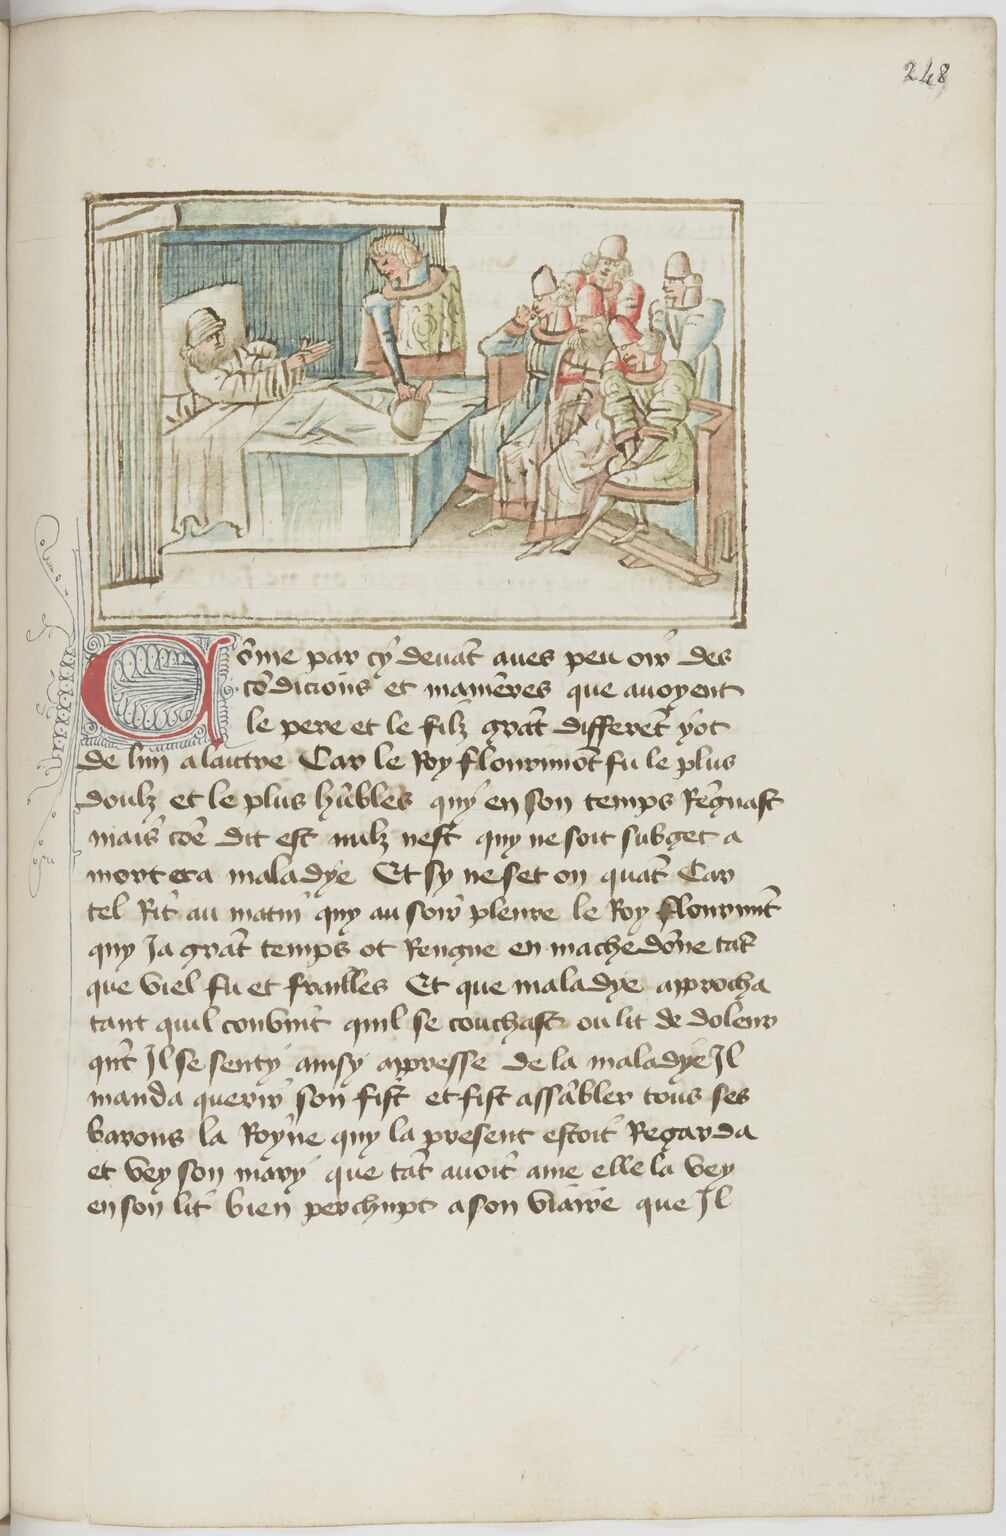 248
Cõme par cy devãt aves peu oir des
cõdicions et manieres que avoyent
le pere et le filz grãt differẽt yot
de lun a laultre Car le Roy flourimõt fu le plus
doulz et le plus hũbles quy en son temps Regnast
mais cõe dit est nulz nest quy ne soit subget a
mort et a maladye Et sy ne set on quãt Car
tel Rit au matin quy au soir pleure le Roy flourimt
quy Ja grãt temps ot Rengne en machedõne tãt
que viel fu et frailles Et que maladye approcha
tant quil convint quil se couchast ou lit de doleur
qnt Il se senty ainsy appresse de la maladye Il
manda querir son fist et fist assãbler tous ses
barons la Royne quy la present estoit Regarda
et vey son mary que tãt avoit ame elle la vey
en son lit bien perchupt a son viaire que Il